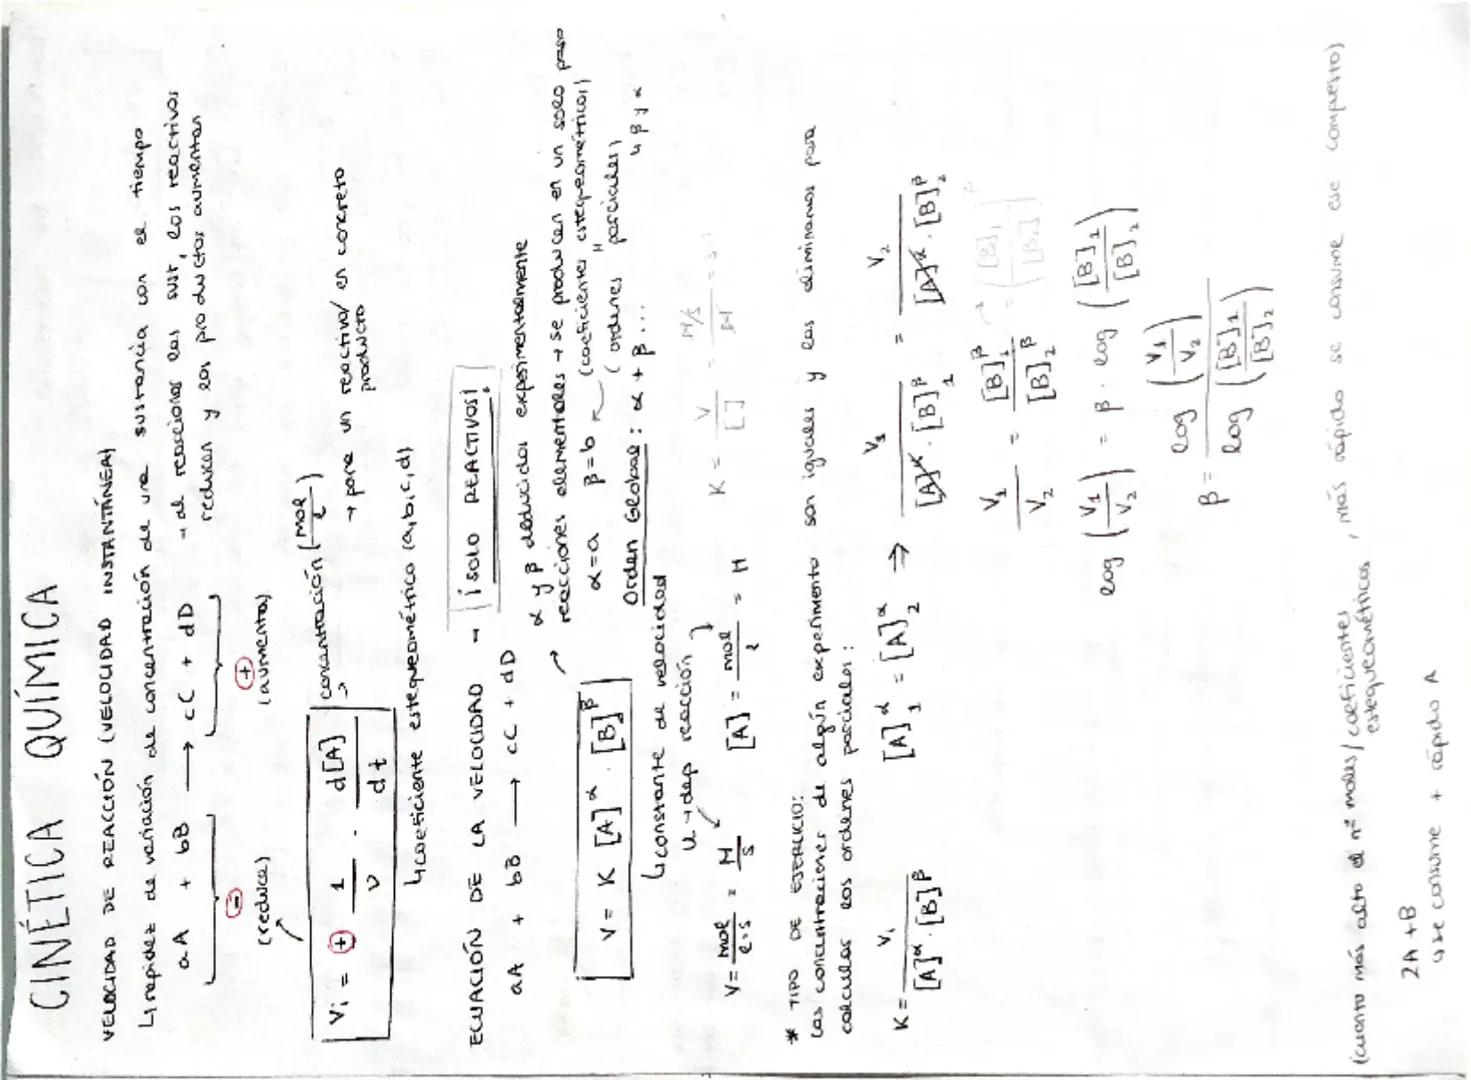 CINÉTICA QUÍMICA
VELOCIDAD DE REACCIÓN (VELOCIDAD INSTANTÁNEA)
↳ rapidez de variación de concentración de una sustancia con el tiempo
→ al reaccionar las sust, los reactivos
reducen y los productos aumentan
aA + bB ⟶ cC + dD
⊖ ⊕
(reduce) (aumenta)
Vi = ⊕ 1/ν · d[A]/dt
→ concentración (mol/l)
→ para un reactivo/ en concreto
producto
↳ coeficiente estequeométrico (a,b,c,d)
ECUACIÓN DE LA VELOCIDAD → ¡SOLO REACTIVOS!
aA + bB ⟶ cC + dD
α y β deducidos experimentalmente
V = K [A]^α · [B]^β
reacciones elementales → se producen en un solo paso
α=a β=b (coeficientes estequeométricos)
" (ordenes parciales)
Orden Global : α + β ... ↳ β y α
↳ constante de velocidad
u → dep reacción
V = mol/l·s = M/s [A] = mol/l = M K = V/[ ] = M/s / M = s⁻¹
* TIPO DE EJERCICIO:
Las concentraciones de algún experimento son iguales y las eliminamos para
calcular los ordenes parciales :
K = V₁/[A]^α · [B]^β [A]₁^α = [A]₂^α ⇒ V₁/[A]^α · [B]₁^β = V₂/[A]^α · [B]₂^β
V₁/V₂ = [B]₁^β/[B]₂^β → = ([B]₁/[B]₂)^β
log (V₁/V₂) = β · log ([B]₁/[B]₂)
β = log (V₁/V₂) / log ([B]₁/[B]₂)
(cuanto más alto el nº moles/coeficientes , más rápido se consume ese compuesto)
estequeométricos
2A + B
↳ se consume + rápido A